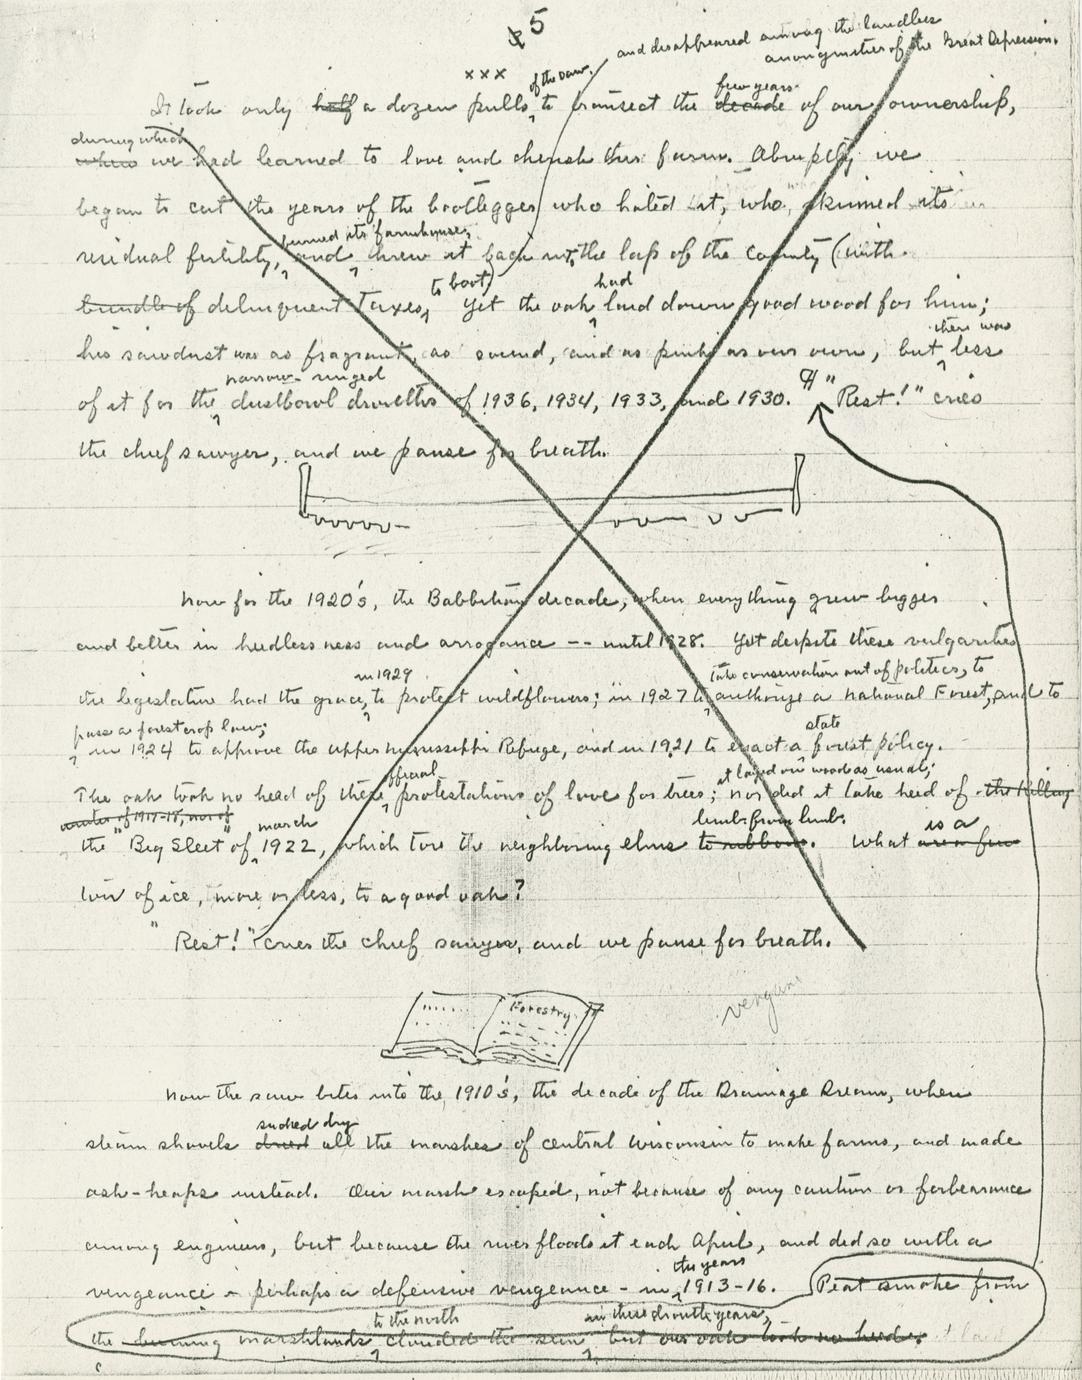 5
and disappeared among the landless
anonymities of the Great Depression.
xxx
of the saw,
few years
It took only half a dozen pulls to transect the decade of our ownership,
during which
where we had learned to love and cherish this farm. Abruptly we
began to cut the years of the bootlegger who hated it, who skinned its
burned its farmhouse,
residual fertility, and threw it back into the lap of the county (with
to boot)
had
bundle of delinquent taxes, Yet the oak laid down good wood for him;
there was
his sawdust was as fragrant, as sound, and as pink as our own, but less
narrow-ringed
of it for the dustbowl drouths of 1936, 1934, 1933, and 1930. "Rest!" cries
the chief sawyer, and we pause for breath.
Now for the 1920's, the Babbitian decade, when everything grew bigger
and better in heedlessness and arrogance -- until 1928. Yet despite these vulgarities
in 1929
take conservation out of politics, to
the legislature had the grace, to protect wildflowers; in 1927 to authorize a National Forest, and to
pass a forest crop law;
state
in 1924 to approve the upper Mississippi Refuge, and in 1921 to enact a forest policy.
official
it layed on wood as usual;
The oak took no heed of these protestations of love for trees; nor did it take heed of the killing
winter of 1917-18, nor of
march
limb from limb.
is a
the "Big Sleet" of 1922, which tore the neighboring elms to ribbons. What are a few
ton of ice, more or less, to a good oak?
"Rest!" cries the chief sawyer, and we pause for breath.
Forestry
vengeance
Now the saw bites into the 1910's, the decade of the Drainage Dream, when
sucked dry
steam shovels dried all the marshes of central Wisconsin to make farms, and made
ash-heaps instead. Our marsh escaped, not because of any caution or forbearance
among engineers, but because the river floods it each April, and did so with a
the years
vengeance - perhaps a defensive vengeance - in 1913-16. Peat smoke from
to the north
in these drouth years,
the burning marshlands clouded the sun but our oak took no heed. it laid